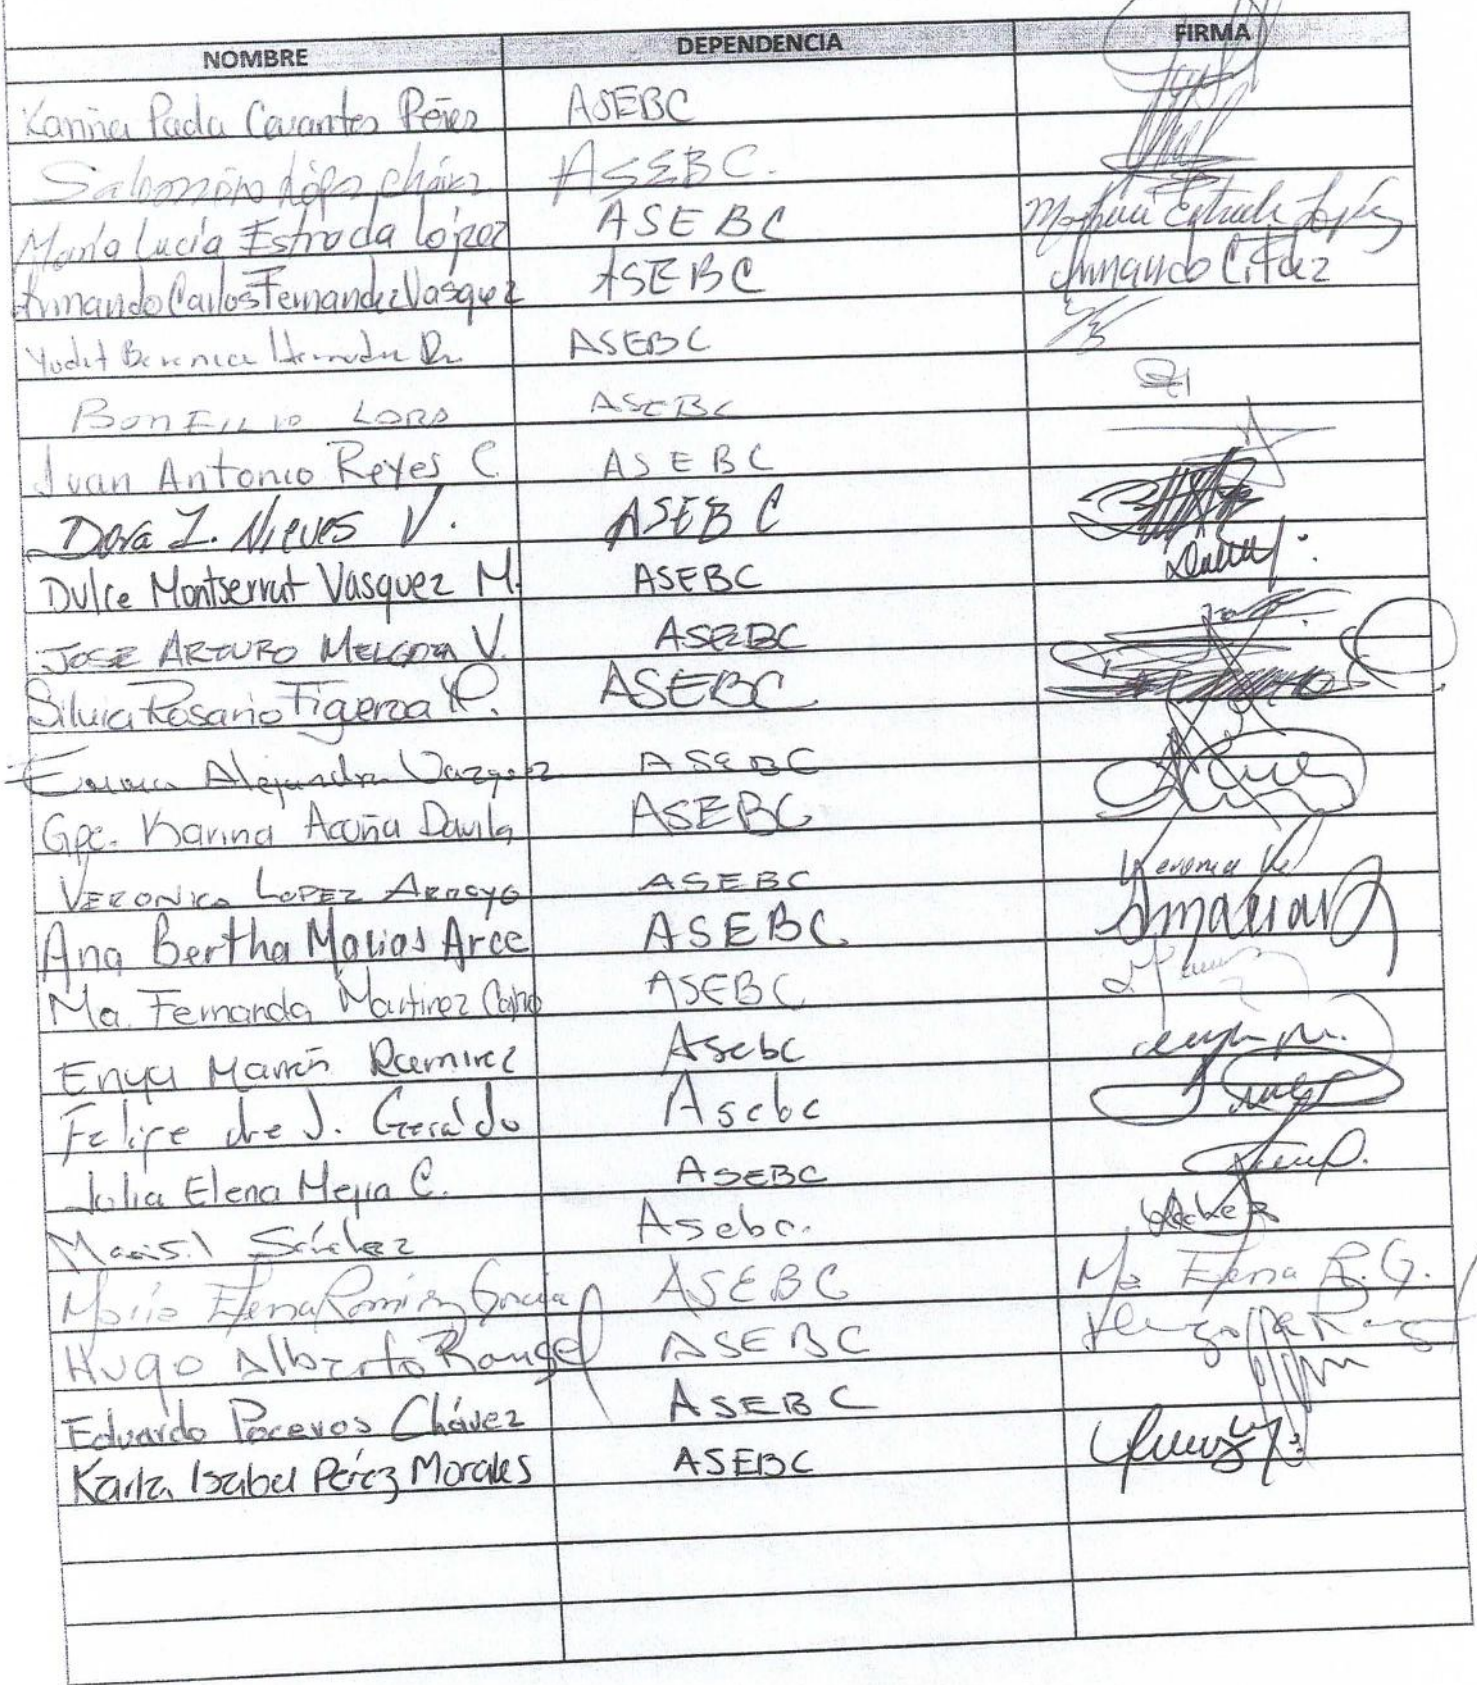 NOMBRE DEPENDENCIA FIRMA
Karina Paola Cervantes Pérez ASEBC
Salomón López Chávez ASEBC.
María Lucía Estrada López ASEBC Ma Lucía Estrada López
Armando Carlos Fernandez Vasquez ASEBC Armando C. Fdez
Yudit Berenice Hernandez ASEBC
BONFILIO LARA ASEBC
Juan Antonio Reyes C. ASEBC
Dora I. Nieves V. ASEBC
Dulce Montserrat Vasquez M. ASEBC
JOSE ARTURO MELGOZA V. ASEBC
Silvia Rosario Figueroa ASEBC
Emma Alejandra Vazquez ASEBC
Gpe. Karina Acuña Davila ASEBC
VERONICA LOPEZ ARROYO ASEBC Veronica
Ana Bertha Macias Arce ASEBC
Ma. Fernanda Martinez Castro ASEBC
Enya Marrón Ramirez Asebc
Felipe de J. Geraldo Asebc
Julia Elena Mejia C. ASEBC
Marisil Sánchez Asebc.
María Elena Ramirez García ASEBC Ma Elena R.G.
Hugo Alberto Rangel ASEBC Hugo
Eduardo Poceros Chávez ASEBC
Karla Isabel Pérez Morales ASEBC